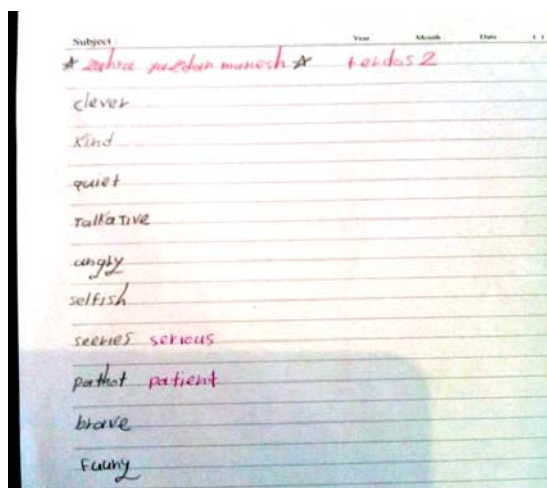 Subject: Year Month Date
☆ Zahra yazdan manesh ☆ ferdos 2
clever
kind
quiet
Talkative
angry
selfish
seeries serious
pathot patient
brave
Fuuny